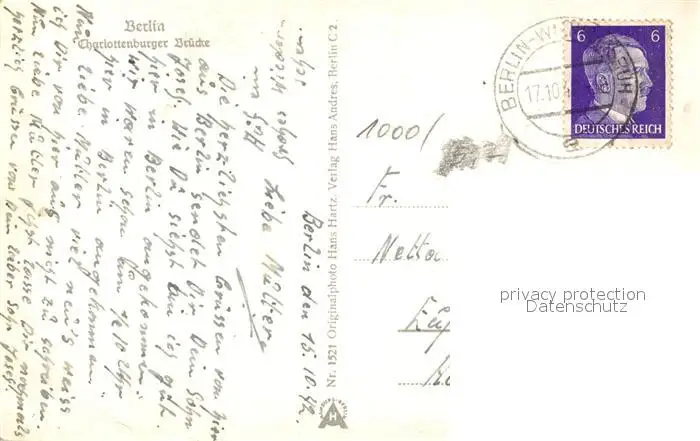 Berlin
Charlottenburger Brücke
Berlin den 15.10.42.
Liebe Mutter
Die herzlichsten Grüssen von hier
aus Berlin sendet Dir Dein Sohn
Josef. Wie Du siehst bin ich gut
hier in Berlin angekommen.
Wir waren schon um 1/2 10 Uhr
hier in Berlin angekommen.
Nun liebe Mutter viel neu's weiss
ich Dir von hier aus nicht zu schreiben.
Nun liebe Mutter jetzt lasse Dir nochmals
herzlich Grüssen von Dein lieber Sohn Josef.
Gott
Nr. 1521 Originalphoto Hans Hartz, Verlag Hans Andres, Berlin C 2
H
1000/
Fr.
Netta
BERLIN-W
17.10.4
a
6 6
DEUTSCHES REICH
privacy protection
Datenschutz